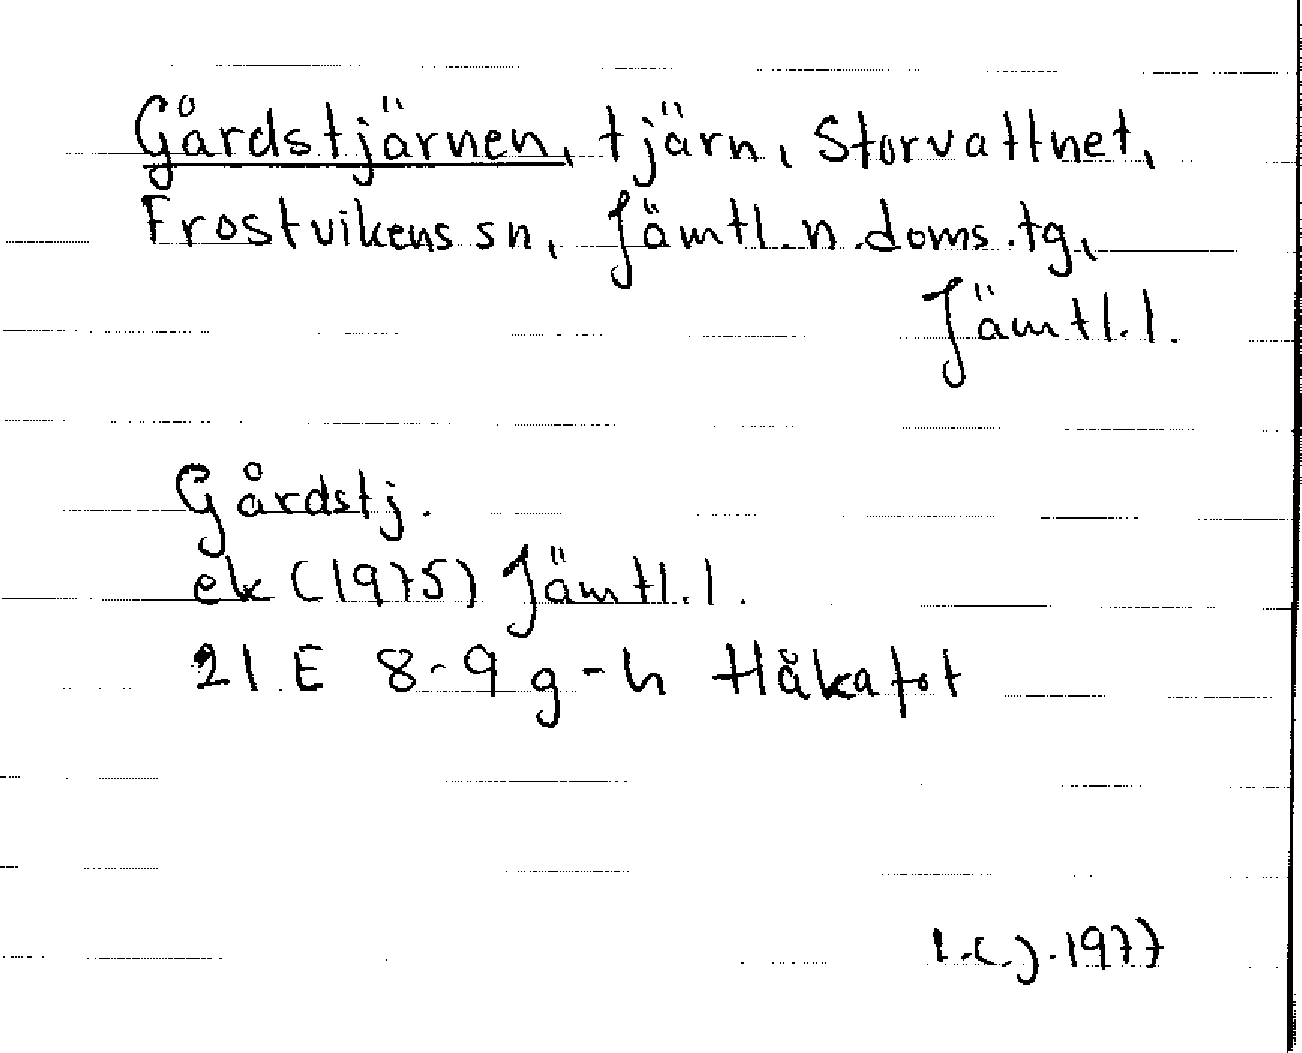 Gårdstjärnen, tjärn, Storvattnet,
Frostvikens sn, Jämtl. n. doms. tg,
Jämtl. l.
Gårdstj.
ek (1975) Jämtl. l.
21 E 8-9 g-h Håkafot
I.C.J. 1977